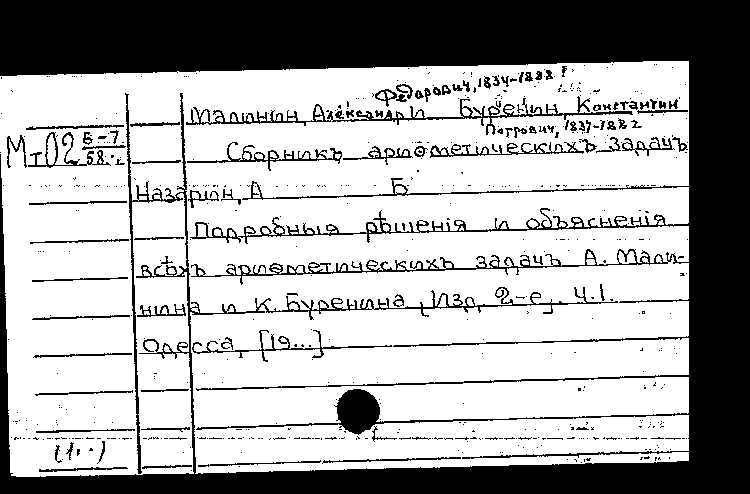 Федорович, 1834-1888
Малинин, Александр и Буренин, Константин
Петрович, 1837-1882
Мт02 Б-7
58
Сборникъ ариѳметическихъ задачъ
Назарин, А Б
Подробныя рѣшенія и объясненія
всѣхъ ариѳметическихъ задачъ А. Мали-
нина и К. Буренина, [Изд. 2-е]. Ч.1.
Одесса, [19...]